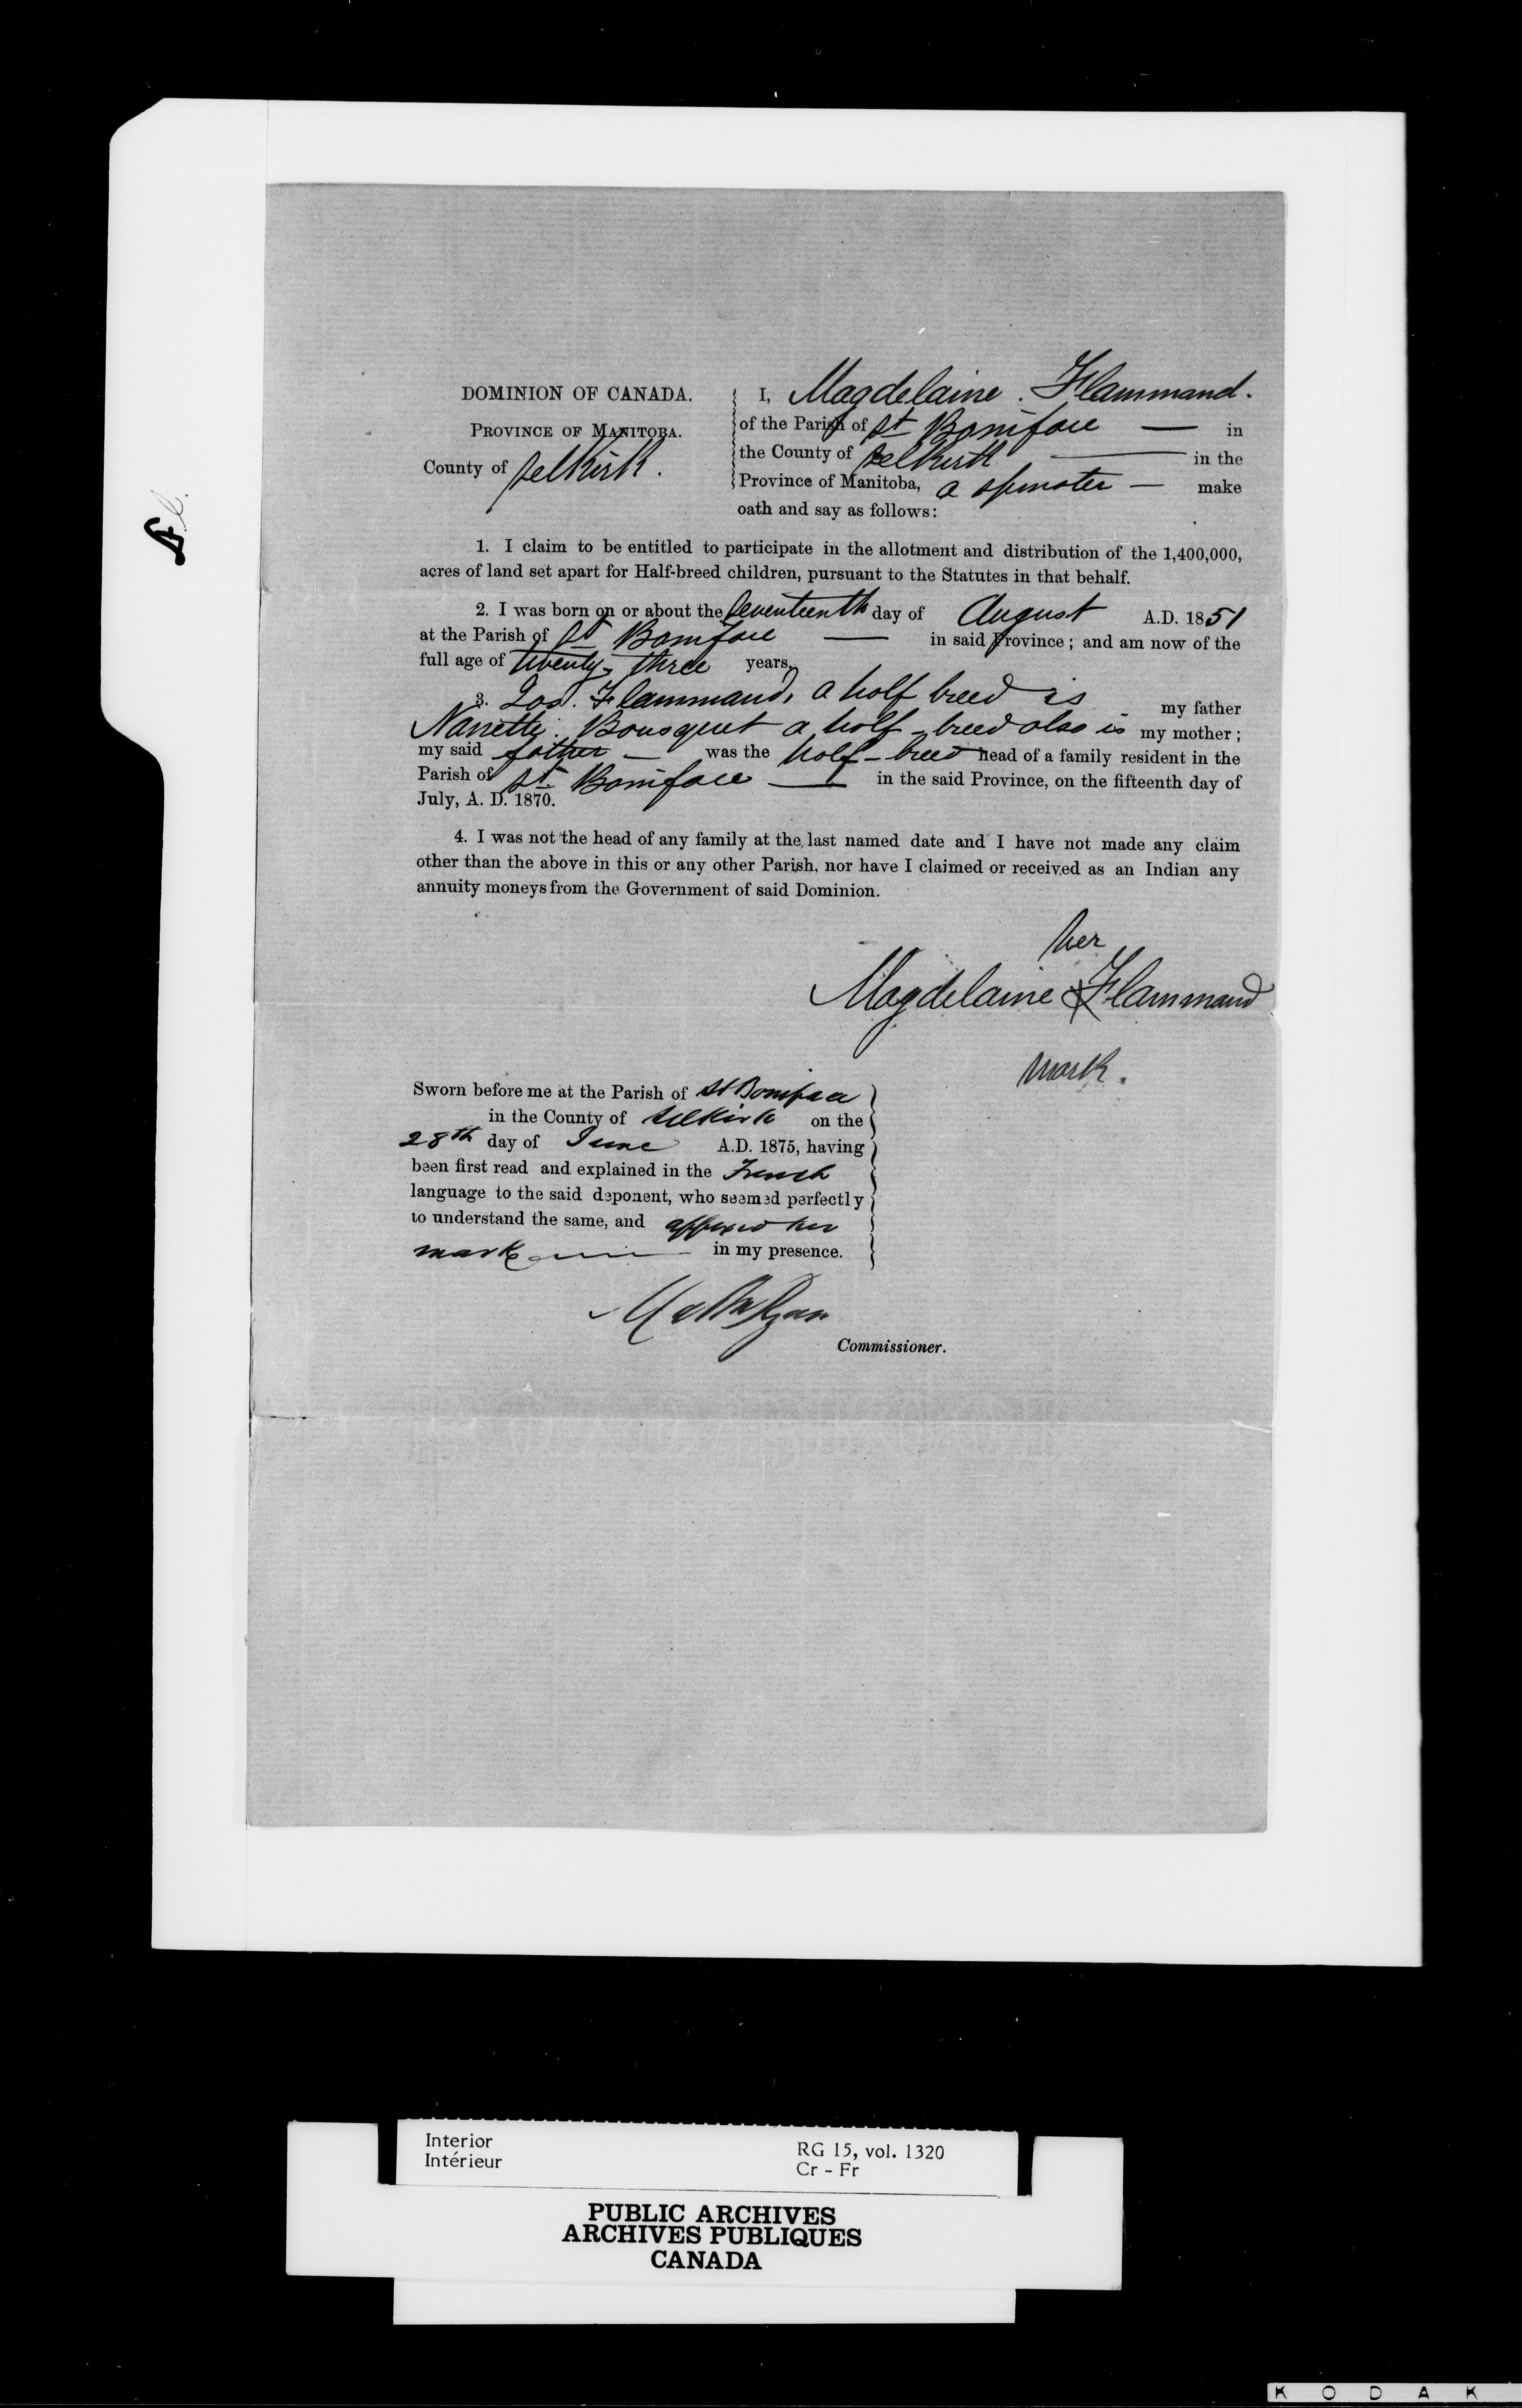 DOMINION OF CANADA.
PROVINCE OF MANITOBA.
County of Selkirk.
I, Magdelaine. Flammand.
of the Parish of St Boniface — in
the County of Selkirk — in the
Province of Manitoba, a spinster — make
oath and say as follows:
1. I claim to be entitled to participate in the allotment and distribution of the 1,400,000,
acres of land set apart for Half-breed children, pursuant to the Statutes in that behalf.
2. I was born on or about the Seventeenth day of August A.D. 1851
at the Parish of St Boniface — in said Province; and am now of the
full age of twenty-three years,
3. Jos. Flammand, a half breed is my father
Nanette Bousquet a half-breed also is my mother;
my said father — was the half-breed head of a family resident in the
Parish of St Boniface — in the said Province, on the fifteenth day of
July, A. D. 1870.
4. I was not the head of any family at the last named date and I have not made any claim
other than the above in this or any other Parish, nor have I claimed or received as an Indian any
annuity moneys from the Government of said Dominion.
her
Magdelaine X Flammand
mark.
Sworn before me at the Parish of St Boniface
in the County of Selkirk on the
28th day of June A.D. 1875, having
been first read and explained in the French
language to the said deponent, who seemed perfectly
to understand the same, and affixed her
mark — in my presence.
Commissioner.
Interior
Intérieur
RG 15, vol. 1320
Cr - Fr
PUBLIC ARCHIVES
ARCHIVES PUBLIQUES
CANADA
KODAK